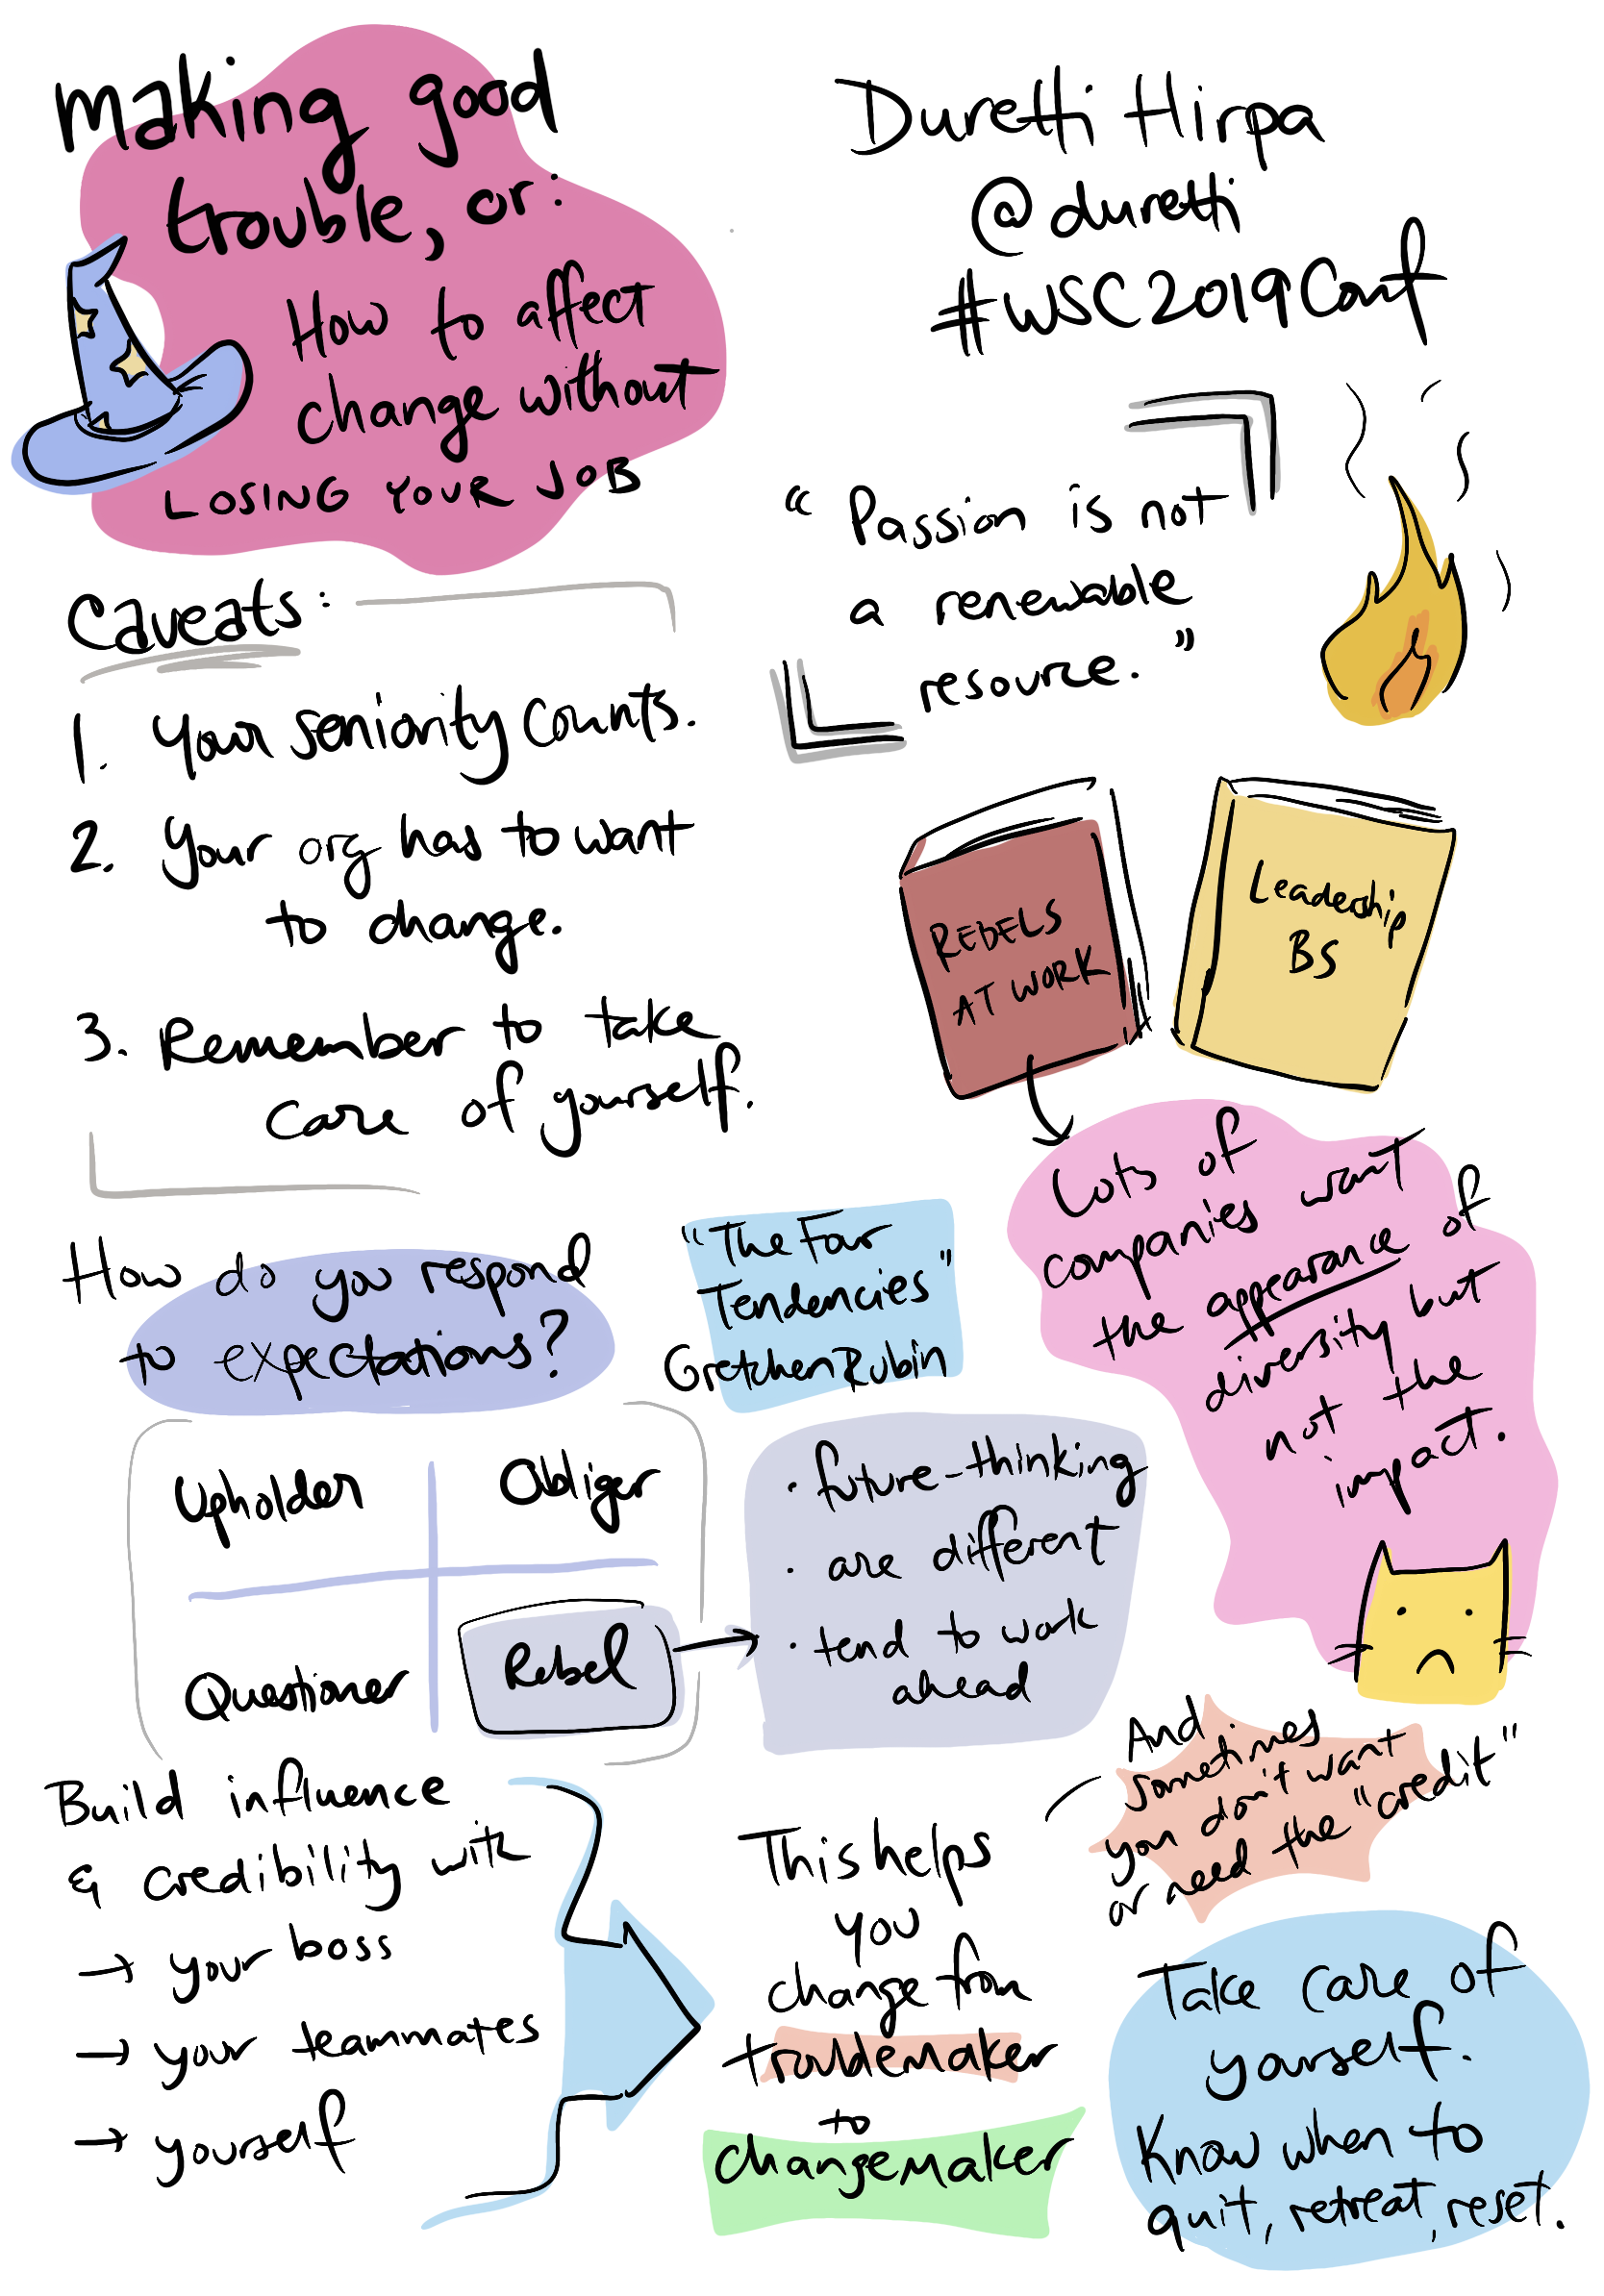 making good
trouble, or:
How to affect
change without
LOSING YOUR JOB
Duretti Hirpa
@duretti
#WSC2019Conf
"Passion is not
a renewable
resource."
Caveats:
1. Your seniority counts.
2. Your org has to want
to change.
3. Remember to take
care of yourself.
REBELS
AT WORK
Leadership
BS
Lots of
companies want
the appearance of
diversity but
not the
impact.
How do you respond
to expectations?
"The Four
Tendencies"
Gretchen Rubin
Upholder
Obliger
Questioner
Rebel
· future-thinking
· are different
· tend to work
ahead
Build influence
& credibility with
→ your boss
→ your teammates
→ yourself
This helps
you
change from
troublemaker
to
changemaker
And
sometimes
you don't want
or need the "credit"
Take care of
yourself.
Know when to
quit, retreat, reset.